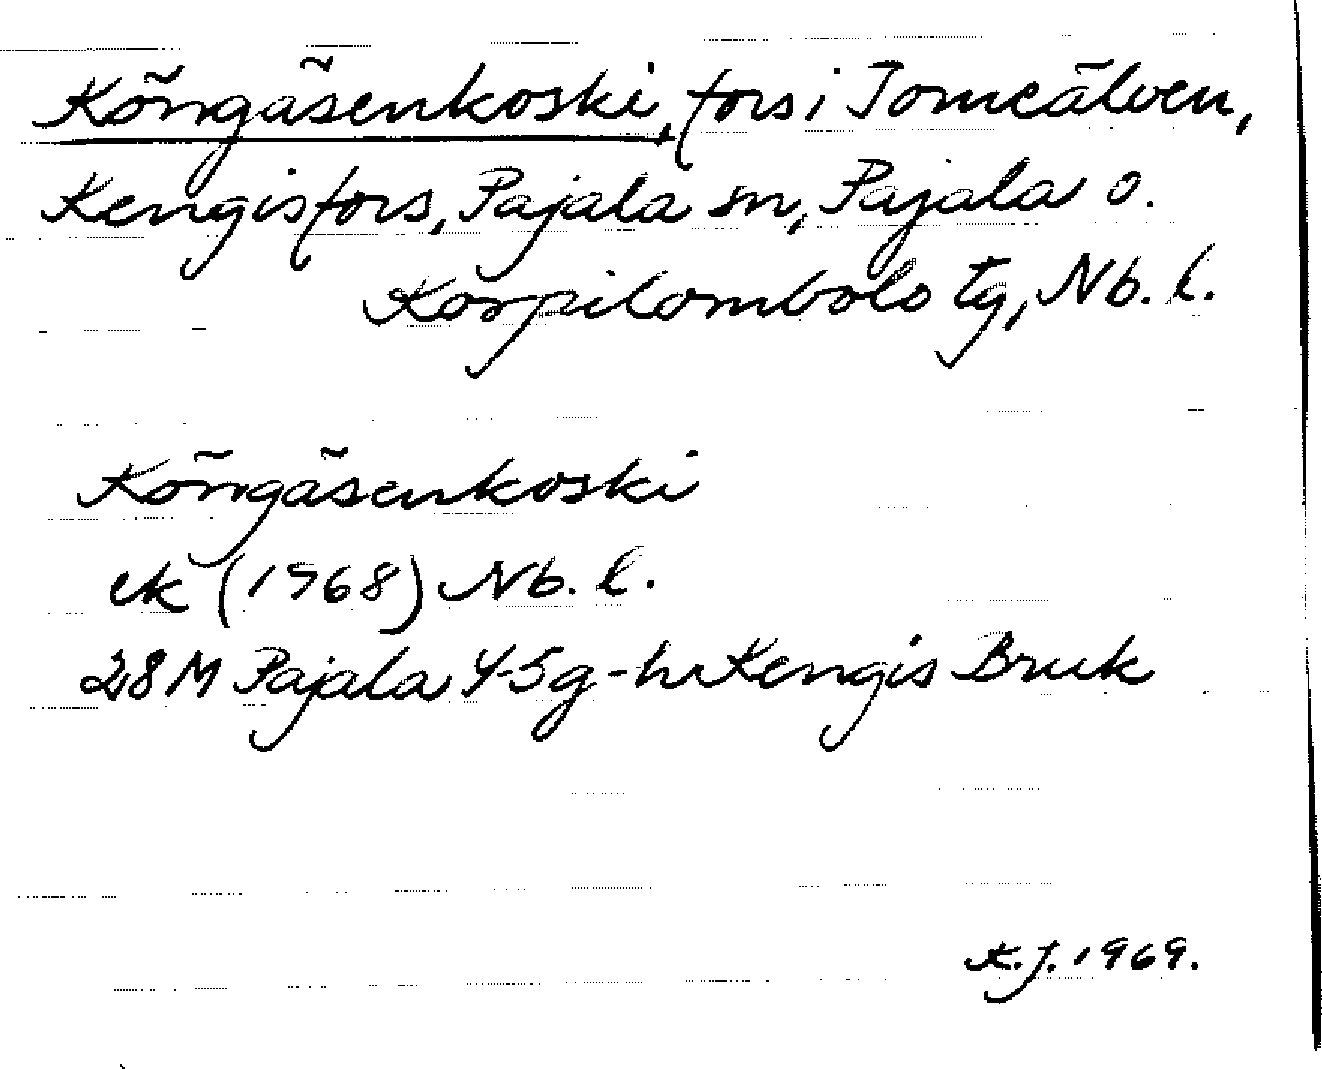 Köngäsenkoski, fors i Torneälven,
Kengisfors, Pajala sn, Pajala o.
Korpilombolo tg, Nb. l.
Köngäsenkoski
ek (1968) Nb. l.
28M Pajala 4-5g-h Kengis Bruk
K.J. 1969.